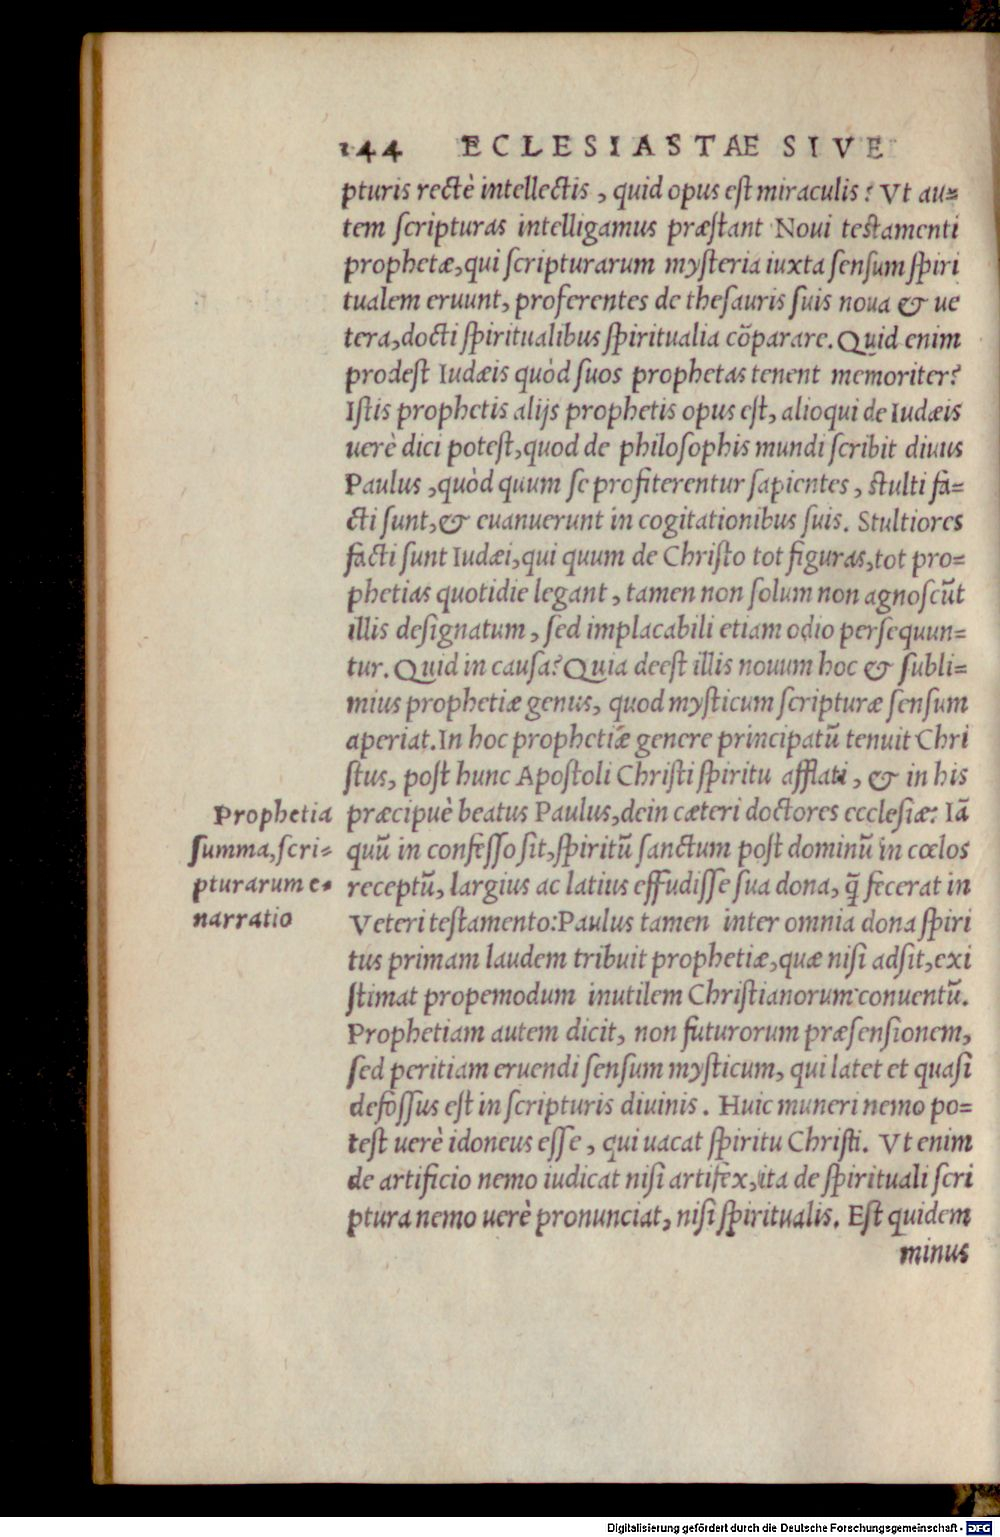 144 ECLESIASTAE SIVE
pturis rectè intellectis, quid opus est miraculis? Vt au-
tem scripturas intelligamus præstant Noui testamenti
prophetæ, qui scripturarum mysteria iuxta sensum spiri
tualem eruunt, proferentes de thesauris suis noua & ue
tera, docti spiritualibus spiritualia cõparare. Quid enim
prodest Iudæis quòd suos prophetas tenent memoriter?
Istis prophetis alijs prophetis opus est, alioqui de Iudæis
uerè dici potest, quod de philosophis mundi scribit diuus
Paulus, quòd quum se profiterentur sapientes, stulti fa-
cti sunt, & euanuerunt in cogitationibus suis. Stultiores
facti sunt Iudæi, qui quum de Christo tot figuras, tot pro-
phetias quotidie legant, tamen non solum non agnoscũt
illis designatum, sed implacabili etiam odio persequun-
tur. Quid in causa? Quia deest illis nouum hoc & subli-
mius prophetiæ genus, quod mysticum scripturæ sensum
aperiat. In hoc prophetiæ genere principatũ tenuit Chri
stus, post hunc Apostoli Christi spiritu afflati, & in his
præcipuè beatus Paulus, dein cæteri doctores ecclesiæ: Iã
quũ in confesso sit, spiritũ sanctum post dominũ in cœlos
receptũ, largius ac latius effudisse sua dona, q̃ fecerat in
Veteri testamento: Paulus tamen inter omnia dona spiri
tus primam laudem tribuit prophetiæ, quæ nisi adsit, exi
stimat propemodum inutilem Christianorum conuentũ.
Prophetiam autem dicit, non futurorum præsensionem,
sed peritiam eruendi sensum mysticum, qui latet et quasi
defossus est in scripturis diuinis. Huic muneri nemo po-
test uerè idoneus esse, qui uacat spiritu Christi. Vt enim
de artificio nemo iudicat nisi artifex, ita de spirituali scri
ptura nemo uerè pronunciat, nisi spiritualis. Est quidem
minus
Prophetia
summa, scri-
pturarum e-
narratio
Digitalisierung gefördert durch die Deutsche Forschungsgemeinschaft - DFG